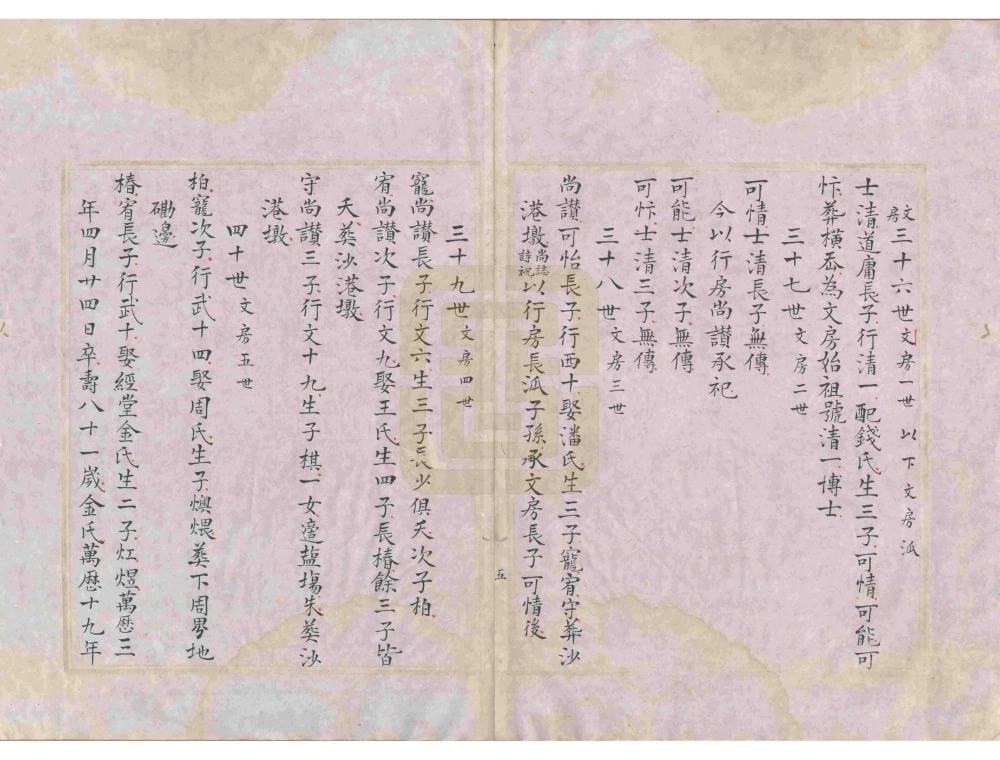 文房三十六世文房一世 以下文房派
士清道庸長子行清一配錢氏生三子可情可能可
忭葬橫岙為文房始祖號清一博士
三十七世文房二世
可情士清長子無傳
今以行房尚讃承祀
可能士清次子無傳
可忭士清三子無傳
三十八世文房三世
尚讃可怡長子行西十娶潘氏生三子寵宥守葬沙
港墩尚誌詩祝以行房長派子孫承文房長子可情後
五
三十九世文房四世
寵尚讃長子行文六生三子長少俱夭次子柏
宥尚讃次子行文九娶王氏生四子長椿餘三子皆
夭葬沙港墩
守尚讃三子行文十九生子棋一女適盐塲朱葬沙
港墩
四十世文房五世
柏寵次子行武十四娶周氏生子燠煨葬下周畧地
磡邊
椿宥長子行武十娶經堂金氏生二子灴煜萬歷三
年四月廿四日卒壽八十一歲金氏萬歷十九年